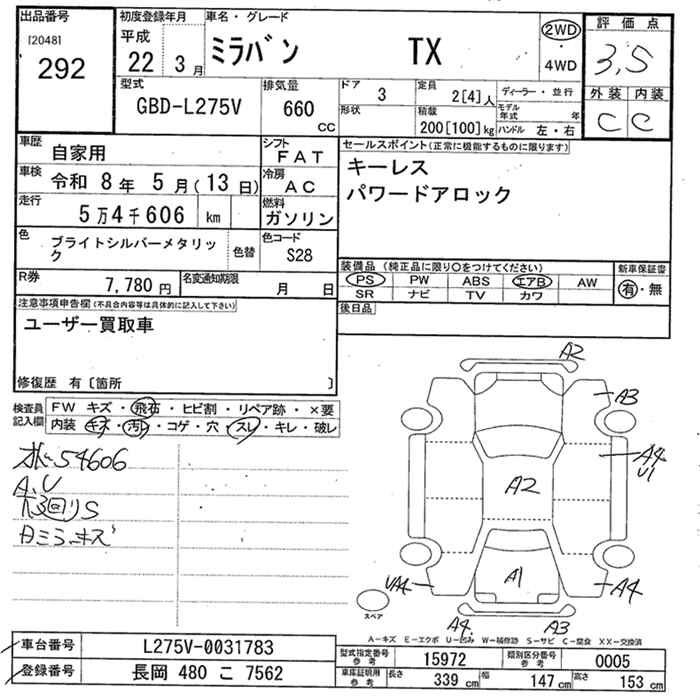 出品番号
[2048]
292
初度登録年月
平成
22 年 3月
車名・グレード
ミラバン TX
2WD
・
4WD
評価点
3,5
外装 内装
C C
型式
GBD-L275V
排気量
660
cc
ドア
3
形状
定員
2[4]人
積載
200[100]kg
ディーラー・並行
モデル年式 年
ハンドル 左・右
車歴
自家用
シフト
FAT
車検
令和 8年 5月(13日)
冷房
AC
走行
5万4千606 km
燃料
ガソリン
色
ブライトシルバーメタリック
色替
色コード
S28
R券
7,780円
名変通知期限
月 日
セールスポイント(正常に機能するものに限ります)
キーレス
パワードアロック
装備品(純正品に限り○をつけてください)
PS PW ABS エアB AW
SR ナビ TV カワ
新車保証書
有・無
後日品
注意事項申告欄(不具合内容等は具体的に記入して下さい)
ユーザー買取車
修復歴 有〔箇所 〕
検査員記入欄
FW キズ・飛石・ヒビ割・リペア跡・×要
内装 キズ・汚レ・コゲ・穴・スレ・キレ・破レ
54606
A,U
回りS
日ミラーキズ
A2
A3
A4
U1
A2
A1
UA4
A4
A4
A3
スペア
A-キズ E-エクボ U-凹み W-補修跡 S-サビ C-腐食 XX-交換済
車台番号
L275V-0031783
登録番号
長岡 480 こ 7562
型式指定番号
参考
15972
類別区分番号
参考
0005
車庫証明用
参考
長さ
339 cm
幅
147 cm
高さ
153 cm